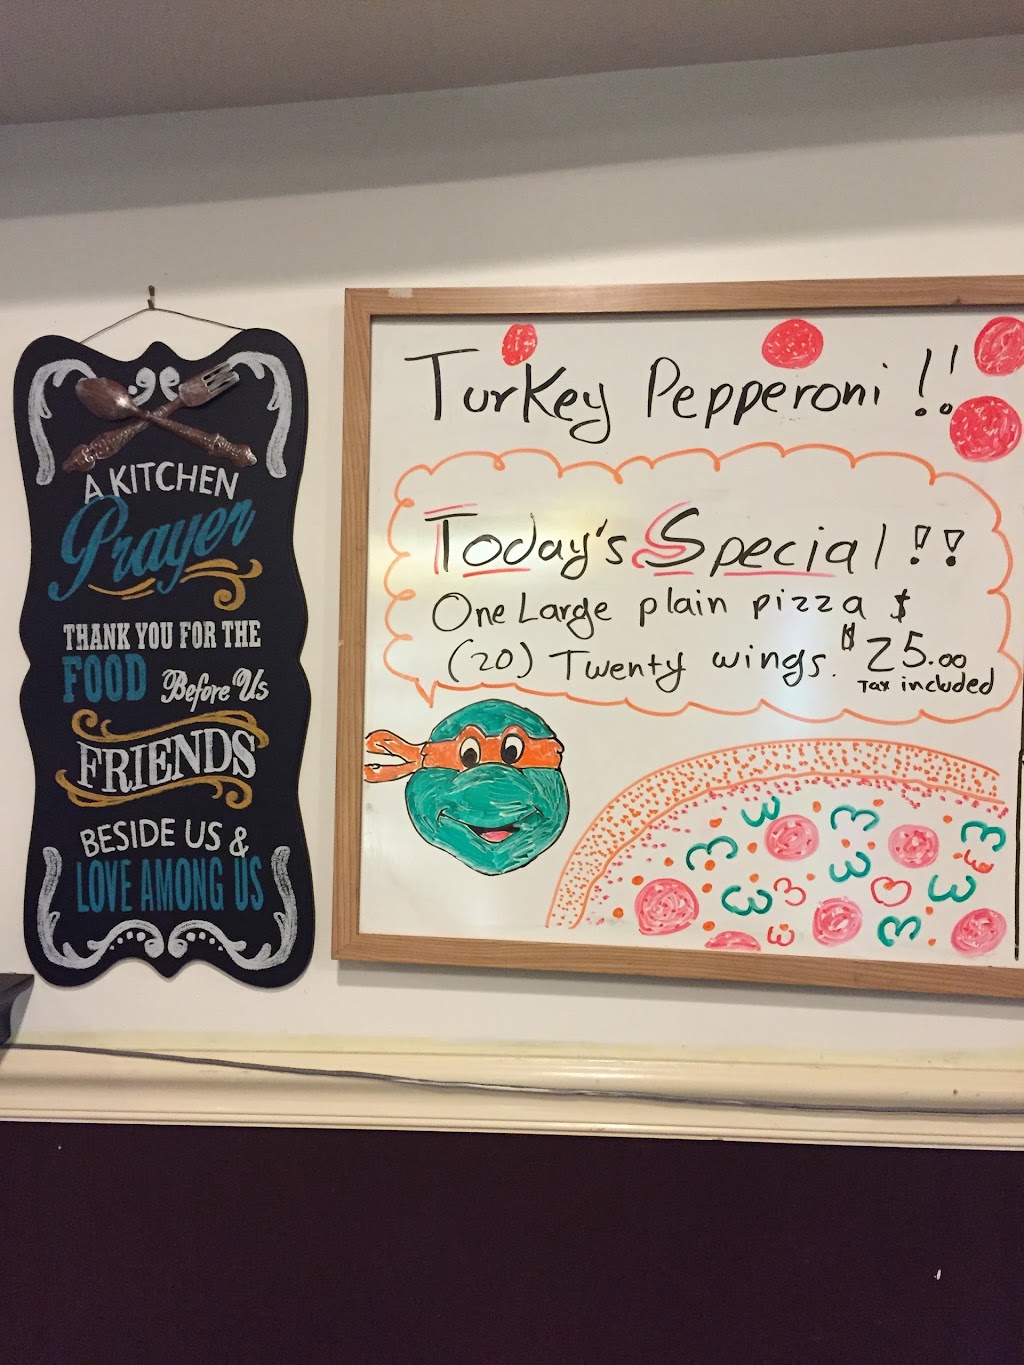 A KITCHEN
Prayer
THANK YOU FOR THE
FOOD Before Us
FRIENDS
BESIDE US &
LOVE AMONG US
Turkey Pepperoni !!
Today's Special !!
One Large plain pizza $
(20) Twenty wings. $25.00
Tax included